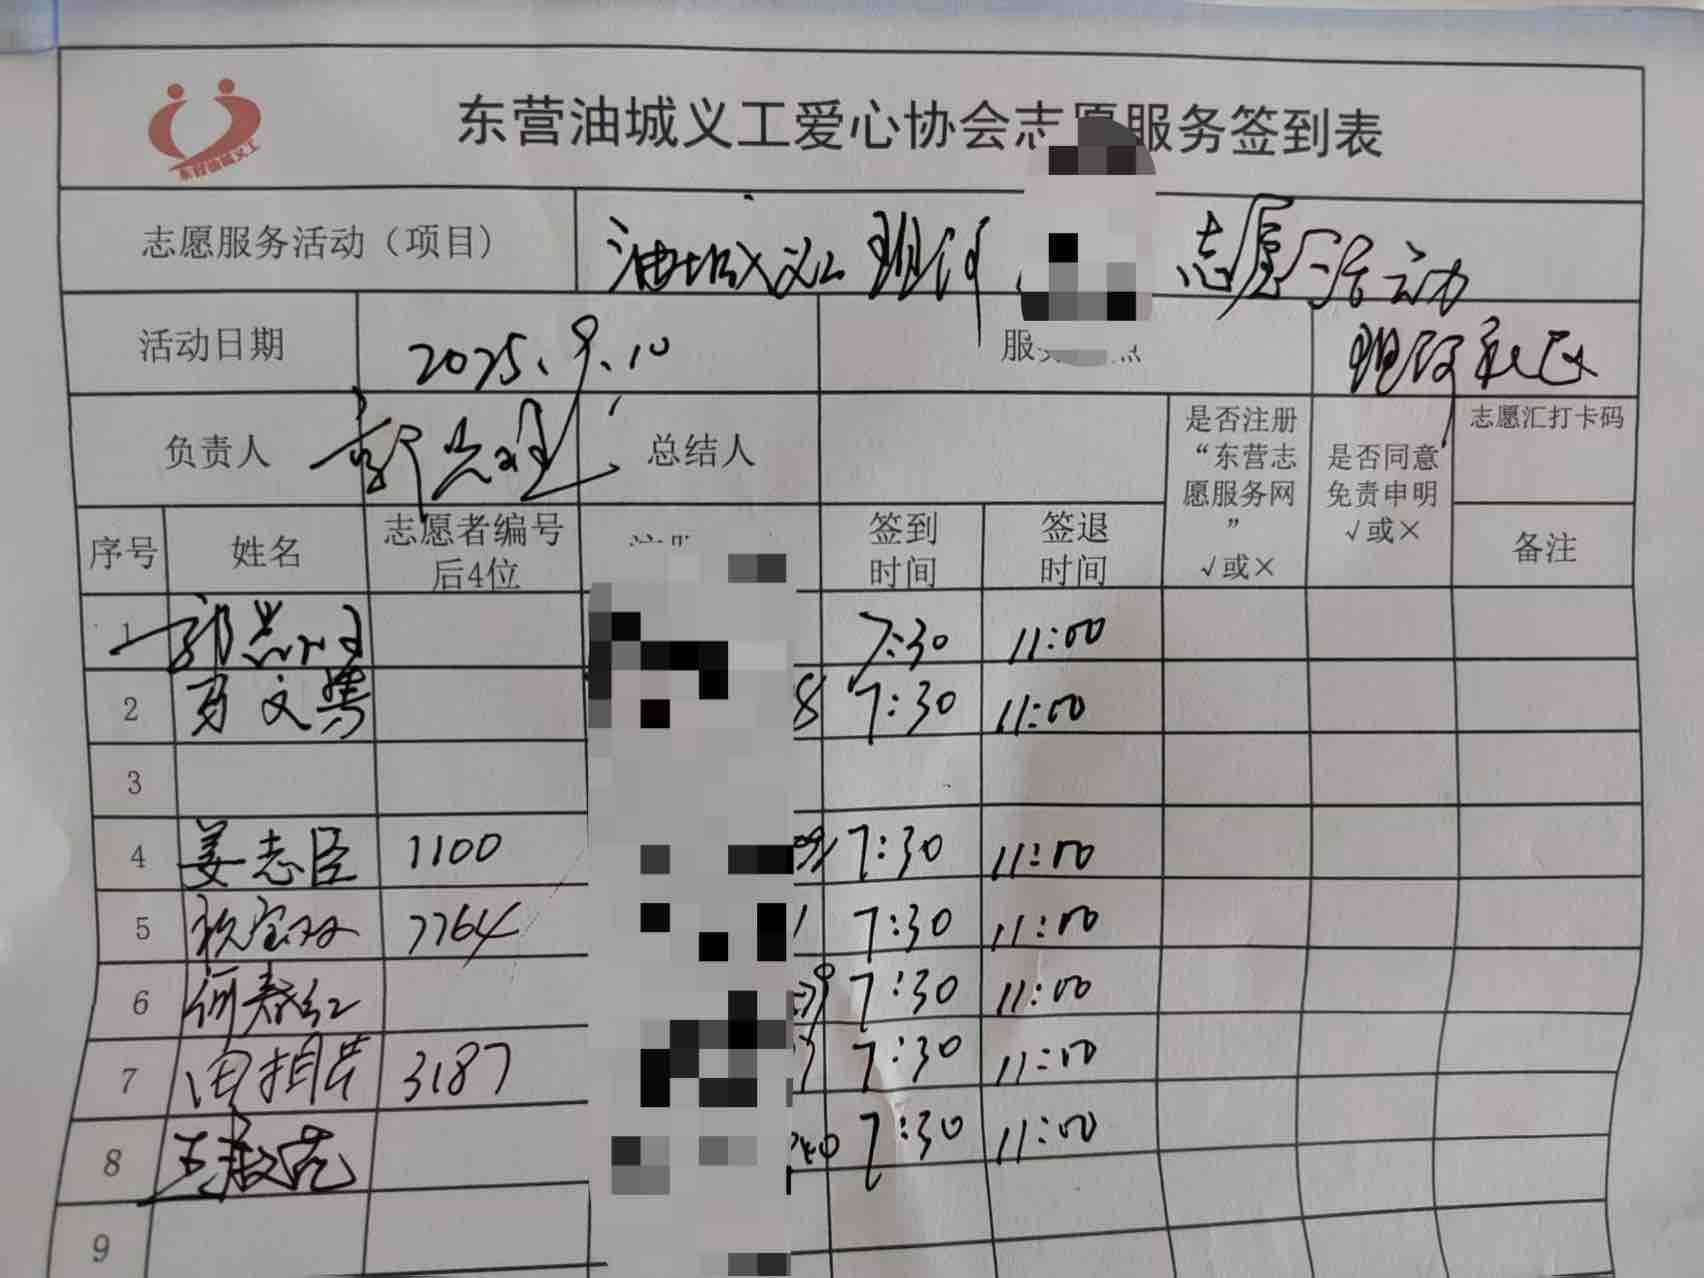 东营油城义工爱心协会志愿服务签到表
东营油城义工
志愿服务活动（项目） 油城义工 志愿活动
活动日期 2025.9.10 服 社区
负责人 总结人 是否注册“东营志愿服务网” √或× 是否同意免责申明 √或× 志愿汇打卡码
序号 姓名 志愿者编号后4位 签到时间 签退时间 备注
1 7:30 11:00
2 文 8 7:30 11:00
3
4 姜志臣 1100 7:30 11:00
5 7764 1 7:30 11:00
6 何春红 7:30 11:00
7 3187 7:30 11:00
8 王 7:30 11:00
9